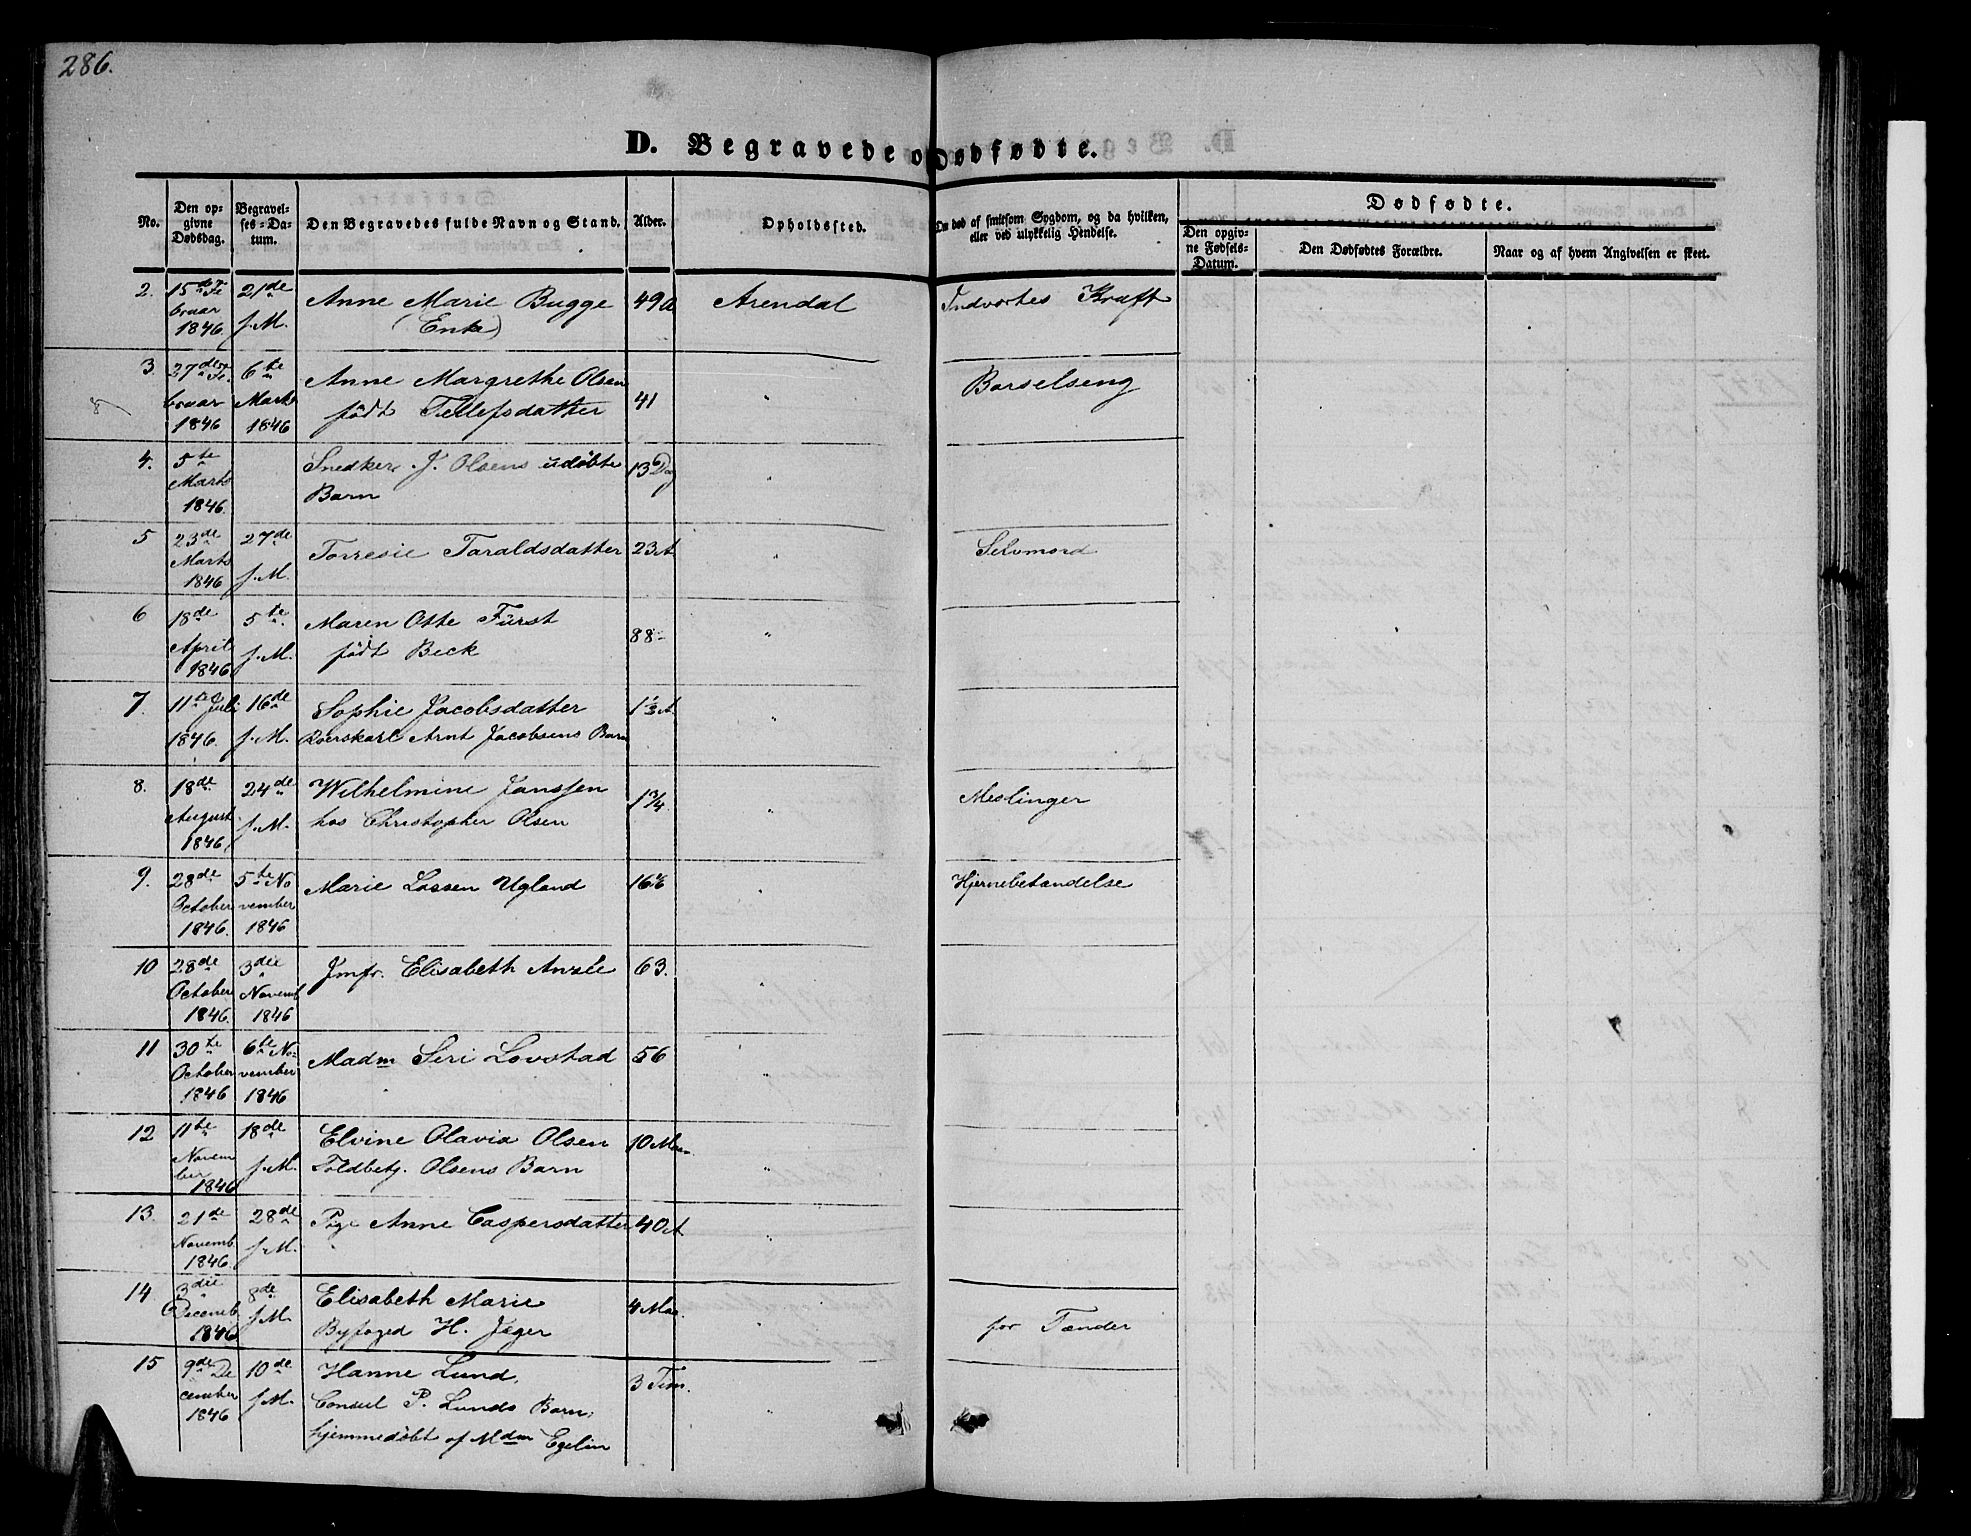 286.
D. Begravede o Dødfødte.
No. Den opgivne Dødsdag. Begravelses-Datum. Den Begravedes fulde Navn og Stand. Alder. Opholdssted. Om død af smitsom Sygdom, og da hvilken, eller ved ulykkelig Hendelse. Dødfødte.
Den opgivne Fødsels-Datum. Den Dødfødtes Forældre. Naar og af hvem Angivelsen er skeet.
2. 15de Fe 21de Anne Marie Bugge 49 A Arendal Indvortes Kræft
bruar f. M. (Enke)
1846
3. 27de Fe. 6te Anne Margrethe Olsen 41 " Barselseng
bruar Marts født Tellefsdatter
1846 1846
4. 5te Snedker J. Olsens udøbte 13 Dag "
Marts Barn
1846.
5 23de 27de Torresie Taraldsdatter 23 A Selvmord
Marts f. M.
1846
6 18de 5te Maren Otte Fürst 88 "
April f. M. født Beck
1846
7. 11te Juli 16de Sophie Jacobsdatter 1 1/3 A. "
1846. f. M. Roerskarl Arnt Jacobsens Barn
8. 18de 24de Wilhelmine Janssen 1 3/4 " Meslinger
August f. M. hos Christopher Olsen
1846
9. 28de 5te No Marie Lassen Ugland 16 1/6 " Hjernebetændelse
October vember
1846. 1846
10 28de 3die Jmfr. Elisabeth 63. "
October Novemb
1846. 1846
11 30te 6te No- Madm Seri Lovstad 56 "
October vember
1846 1846
12 11te 18de Elvine Olavia Olsen 10 Maa "
Novem f. M. Toldbetj. Olsens Barn
ber 1846
13. 21de 28de Pige Anne Caspersdatter 40 A
Novemb. f. M.
1846.
14. 3die 8de Elisabeth Marie 4 Maa. for Tænder
Decemb. f. M. Byfoged H. Jæger
1846
15 9de De 10de Hanne Lund, 3 Tim.
cember f. M. Consul P. Lunds Barn,
1846 hjemmedøbt af Mdm